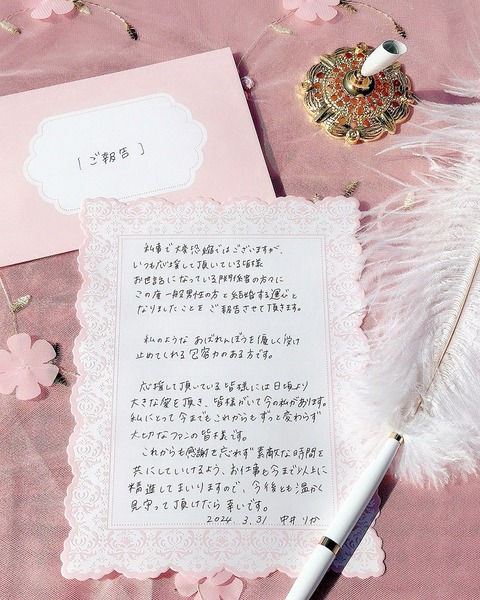 [ご報告]
私事で大変恐縮ではございますが、
いつも応援して頂いている皆様
お世話になっている関係者の方々に
この度一般男性の方と結婚する運びと
なりましたことをご報告させて頂きます。
私のような あばれんぼうを優しく受け
止めてくれる包容力のある方です。
応援して頂いている皆様には日頃より
大きな愛を頂き、皆様がいて今の私があります。
私にとって今までもこれからもずっと変わらず
大切なファンの皆様です。
これからも感謝を忘れず素敵な時間を
共にしていけるよう、お仕事も今まで以上に
精進してまいりますので、今後とも温かく
見守って頂けたら幸いです。
2024. 3. 31 中井りか